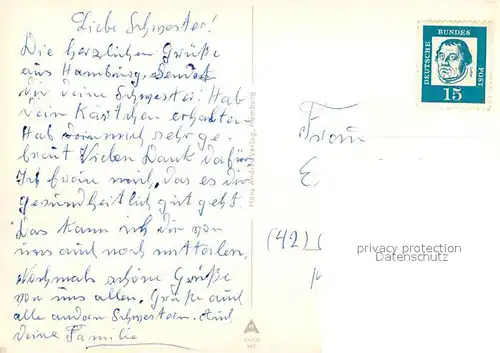 Liebe Schwester!
Die herzlichen Grüße
aus Hamburg, Sendet
dir deine Schwester. Hab
Dein Kärtchen erhalten
Hab mich sehr ge-
freut Vielen Dank dafür
Ich freue mich, das es dir
gesundheitlich gut geht.
Das kann ich dir von
uns auch noch mitteilen,
Nochmals schöne Grüße
von uns allen. Grüße auch
alle andern Schwestern. Auch
Deine Familie
Hamburg
DEUTSCHE
BUNDES
POST
15
Frau
E
(42)(
privacy protection
Datenschutz